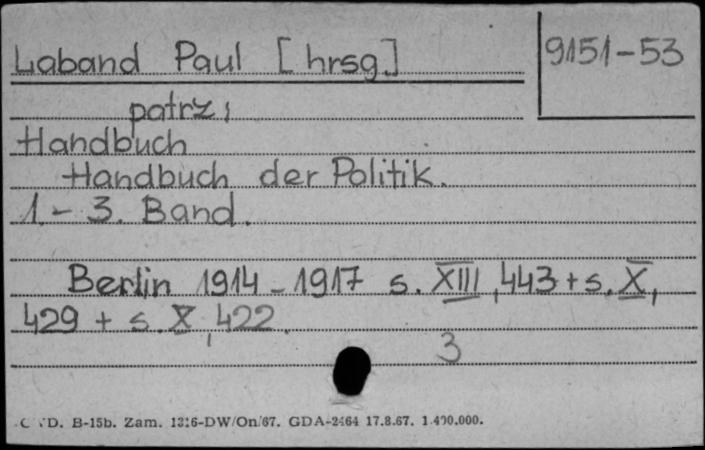 Laband Paul [hrsg]
9151-53
patrz:
Handbuch
Handbuch der Politik.
1.- 3. Band.
Berlin 1914-1917 s. XIII, 443 + s. X,
429 + s. X, 422.
3
B-15b. Zam. 1316-DW/On/67. GDA-2464 17.8.67. 1.400.000.